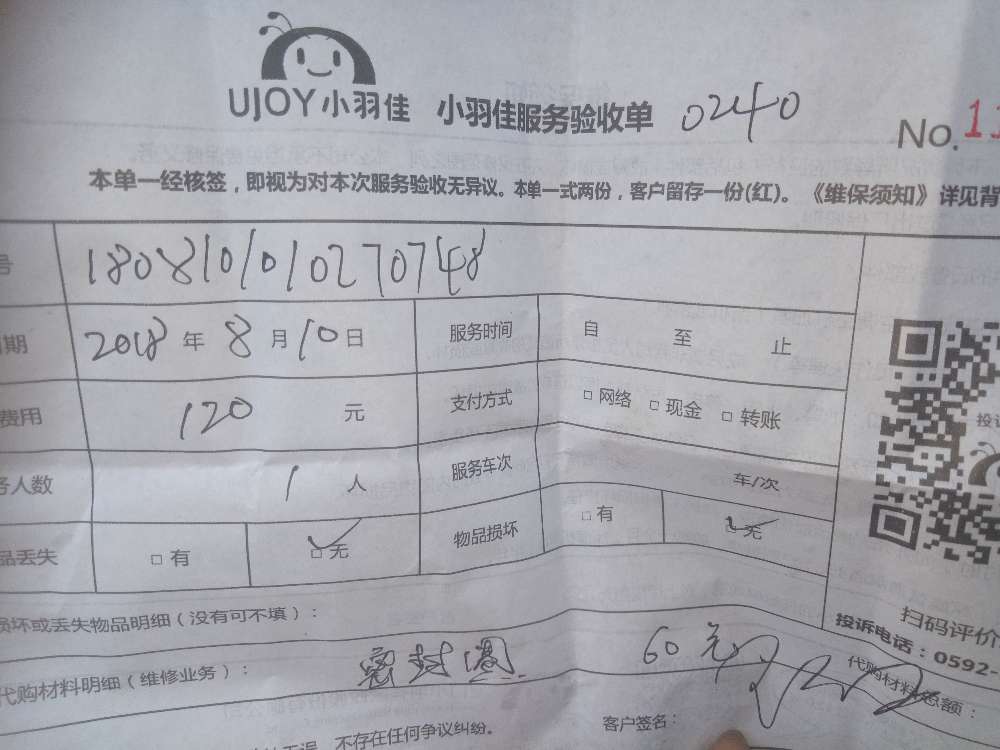 UJOY小羽佳 小羽佳服务验收单 0240 No.11
本单一经核签，即视为对本次服务验收无异议。本单一式两份，客户留存一份(红)。《维保须知》详见背
号 1808101010270748
期 2018年8月10日 服务时间 自 至 止
费用 120 元 支付方式 □网络 □现金 □转账
务人数 1 人 服务车次 车/次
品丢失 □有 □无 物品损坏 □有 □无
损坏或丢失物品明细（没有可不填）：
扫码评价
投诉电话：0592-
代购材料明细（维修业务）： 密封圈 60元 代购材料总额：
不存在任何争议纠纷。 客户签名：